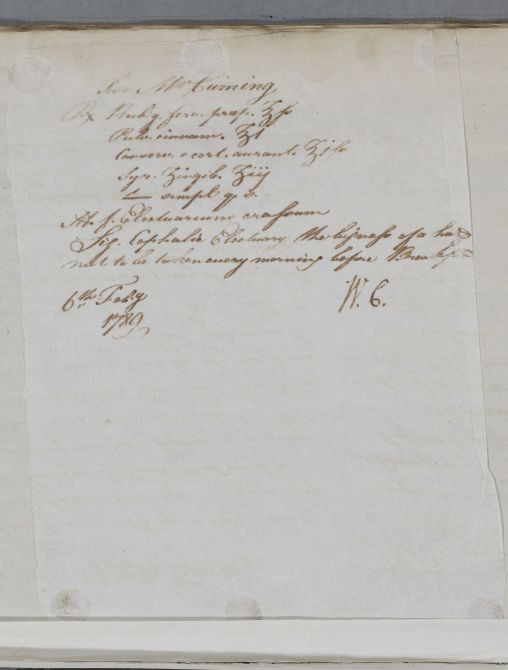 For Mr Cuming
℞ Rubig. ferr. præp. ʒſs
Pulv. cinnam. ʒi
Conserv. e cort. aurant. ʒjſs
Syr. Zingib. ʒiij
— simpl q. s.
M. f. Electuarium crassum
Sig. Cephalic Electuary the bigness of a
nut to be taken every morning before Breakf
6th Feby
1789
W. C.